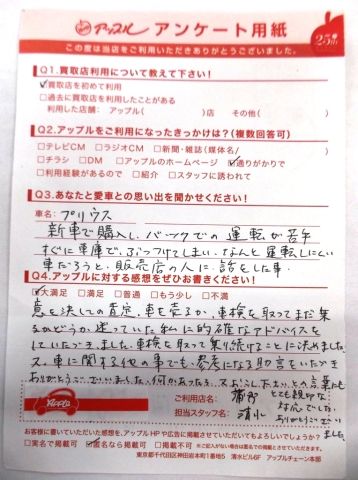 アップル アンケート用紙
25th
この度は当店をご利用いただきありがとうございました。
Q1.買取店利用について教えて下さい!
☑買取店を初めて利用
□過去に買取店を利用したことがある
利用した店舗: アップル( )店 その他( )
Q2.アップルをご利用になったきっかけは?(複数回答可)
□テレビCM □ラジオCM □新聞・雑誌(媒体名/ )
□チラシ □DM □アップルのホームページ ☑通りがかりで
□利用経験があるので □紹介 □スタッフに誘われて
Q3.あなたと愛車との思い出を聞かせください!
車名: プリウス
新車で購入し、バックでの運転が苦手
すぐに車庫で、ぶつけてしまい、なんと運転しにくい
車だろうと、販売店の人に話をした事。
Q4.アップルに対する感想をぜひお書きください!
☑大満足 □満足 □普通 □もう少し □不満
意を決しての査定、車を売るか、車検を取ってまだ乗
るかどうか迷っていた私に的確なアドバイスを
していただき、車検を取って乗り続けることに決めました。
又、車に関する他の事でも、参考になる助言をいただき
ありがとうございました。何かあったら、又お こし下さいとの言葉も
とても親切な
対応でした。
ありがとうござい
ました。
Apple
ご利用店名:
担当スタッフ名: 清水
お客様に書いていただいた感想を、アップルHPや広告に掲載させていただいてもよろしいでしょうか?
□実名で掲載可 ☑匿名なら掲載可 □掲載不可 ※ご記入がない場合は匿名にて掲載させていただく場合がございます。
東京都千代田区神田岩本町1番地5 清水ビル6F アップルチェーン本部